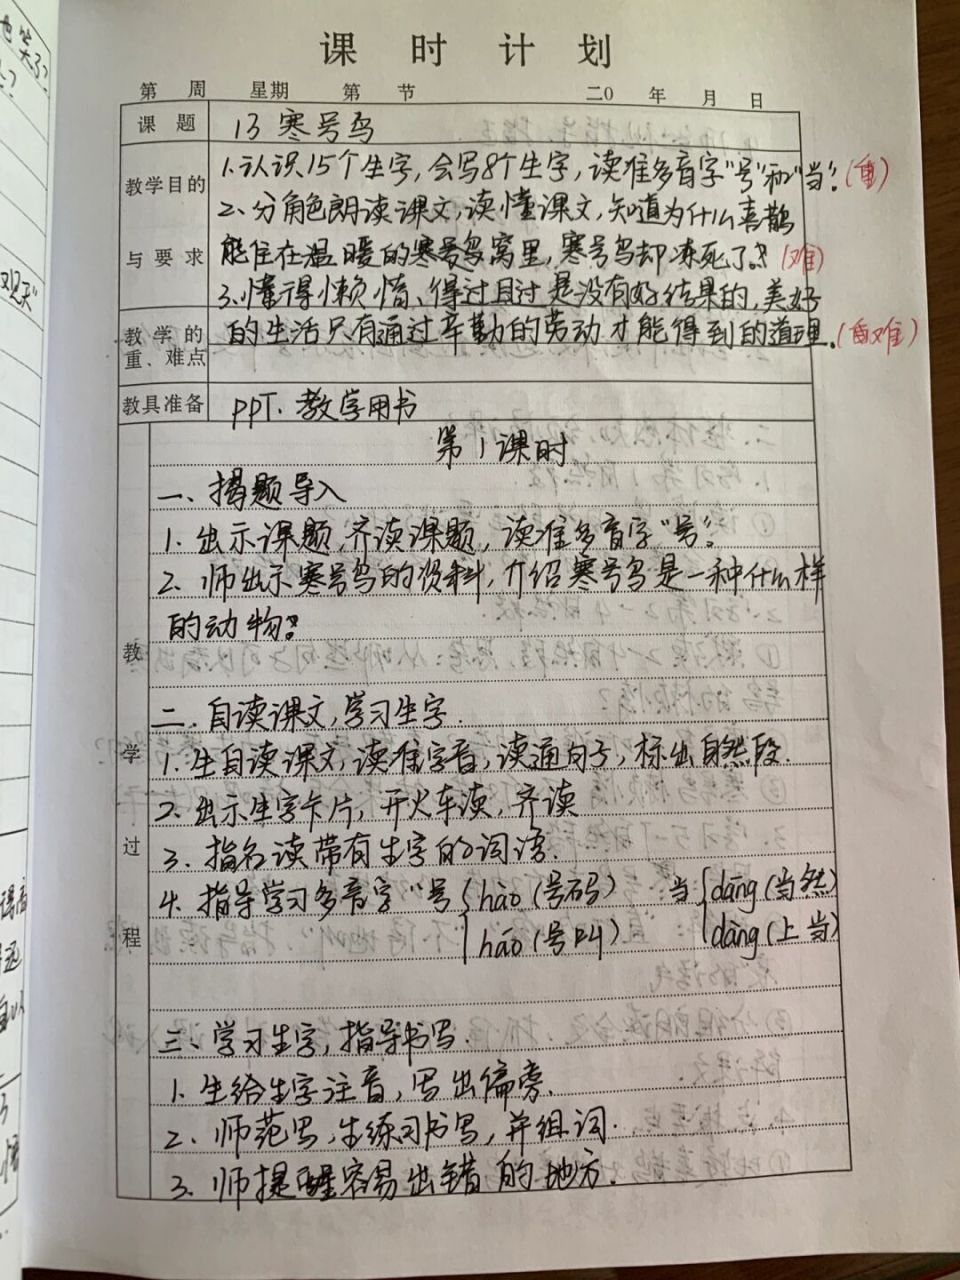 课 时 计 划
第 周 星期 第 节 二0 年 月 日
课 题 13 寒号鸟
教学目的 1.认识15个生字,会写8个生字,读准多音字“号”和“当”。(重)
2.分角色朗读课文,读懂课文,知道为什么喜鹊
与 要 求 能住在温暖的窝里,寒号鸟却冻死了。(难)
3.懂得懒惰、得过且过是没有好结果的,美好
教 学 的 的生活只有通过辛勤的劳动才能得到的道理。(重难)
重、难点
教具准备 PPT. 教学用书
第1课时
一、揭题导入
1. 出示课题,齐读课题,读准多音字“号”。
2. 师出示寒号鸟的资料,介绍寒号鸟是一种什么样
的动物。
教 学 过 程
二.自读课文,学习生字.
1. 生自读课文,读准字音,读通句子,标出自然段.
2. 出示生字卡片,开火车读,齐读
3. 指名读带有生字的词语.
4. 指导学习多音字“号 hào (号码) 当 dāng (当然)
háo (号叫) dàng (上当)
三、学习生字,指导书写.
1. 生给生字注音,写出偏旁.
2. 师范写,生练习书写,并组词.
3. 师提醒容易出错的地方.